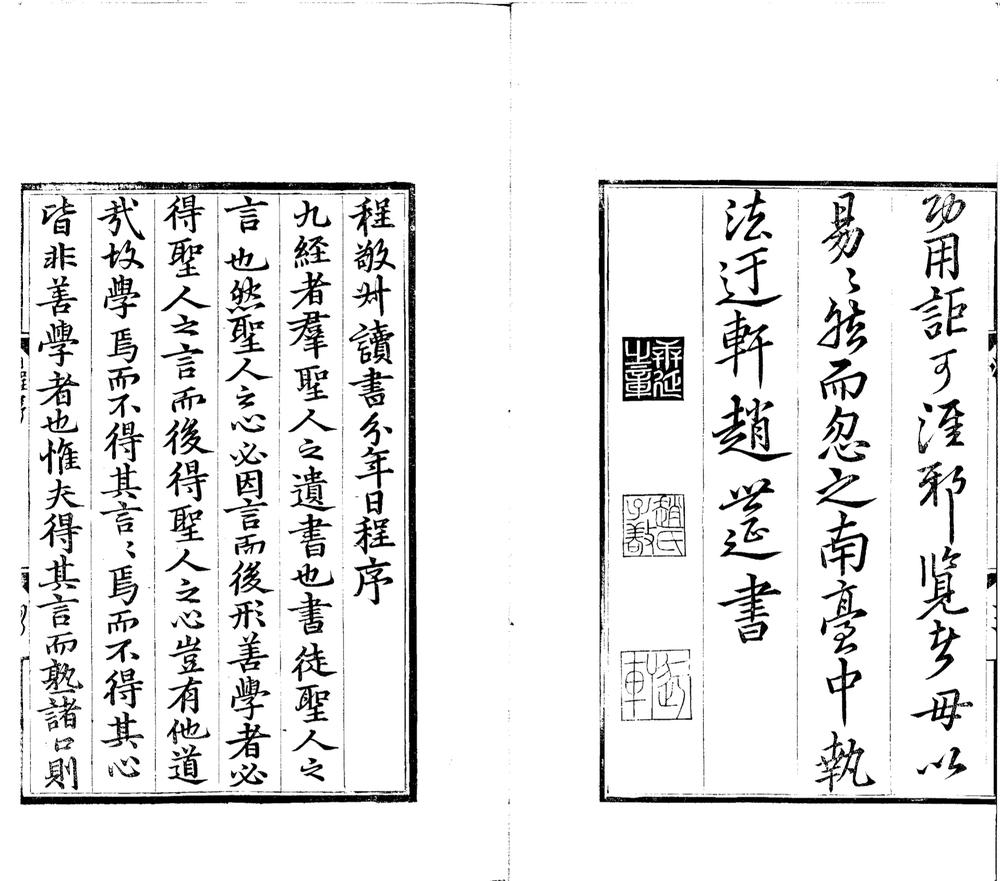 功用詎可涯邪覧者毋以
易〻然而忽之南臺中執
法迂軒趙世延書
世延之章
趙氏子敬
迂軒
程敬叔讀書分年日程序
九経者羣聖人之遺書也書徒聖人之
言也然聖人之心必因言而後形善學者必
得聖人之言而後得聖人之心豈有他道
㢤故學焉而不得其言〻焉而不得其心
皆非善學者也惟夫得其言而熟諸口則